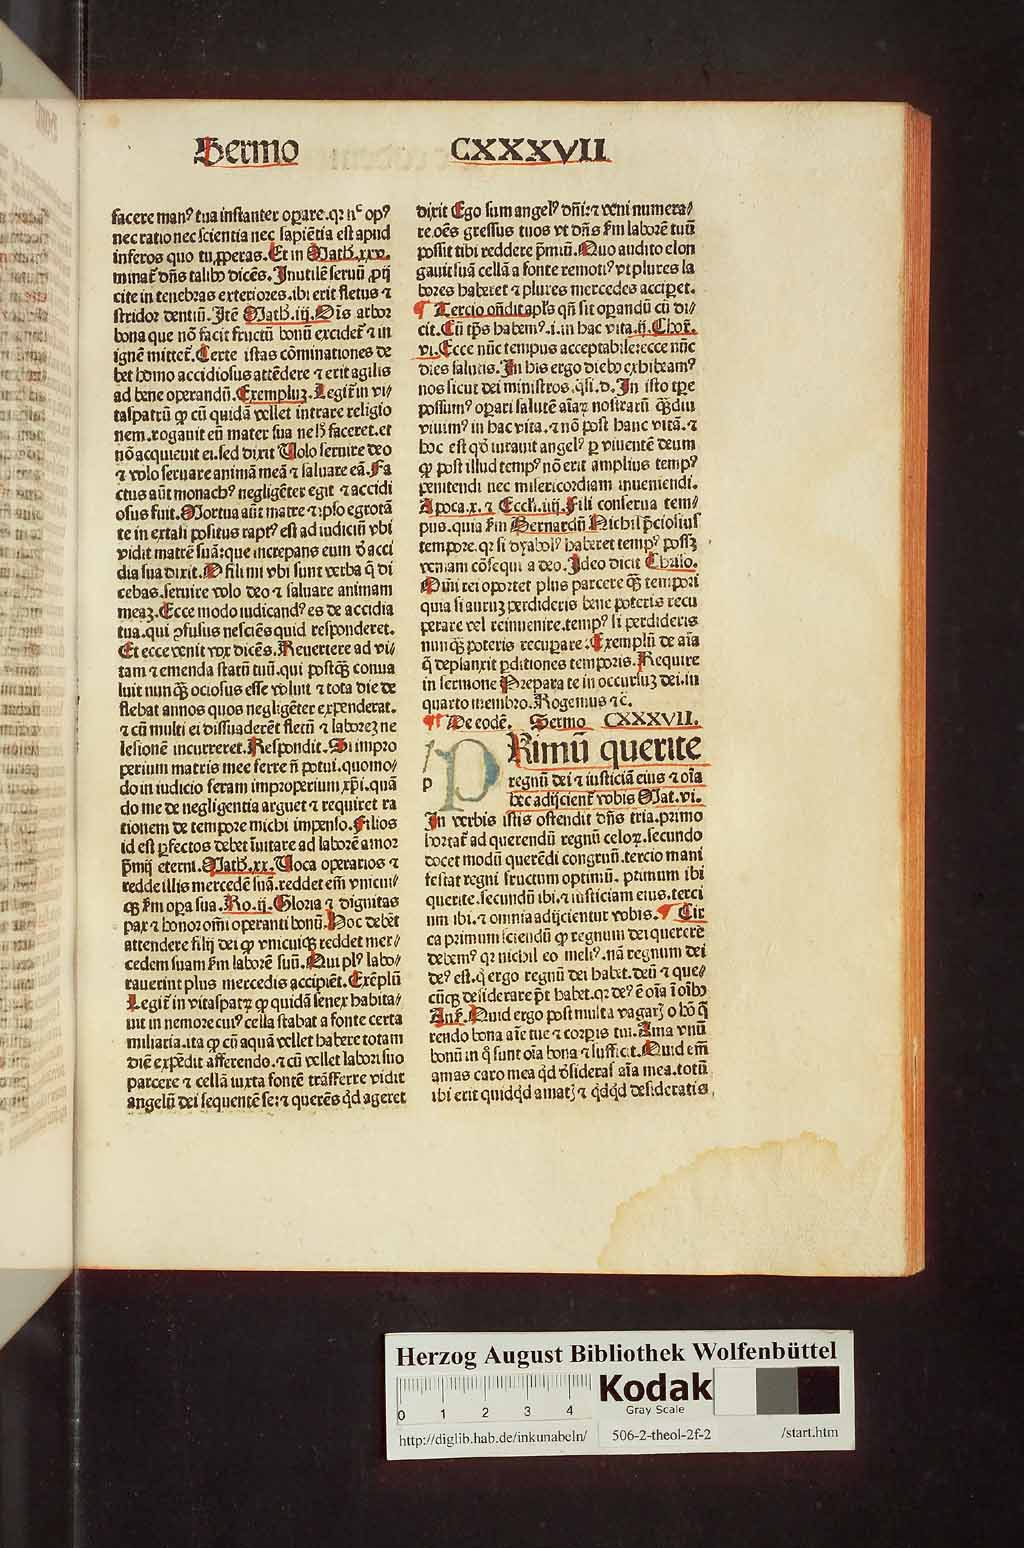 Sermo CXXXVII
facere manꝰ tua instanter oꝑare. qꝛ nᶜ opꝰ
nec ratio nec scientia nec sapiētia est apud
inferos quo tu ꝓperas. Et in Math. xxv.
minat᷑ dn̄s talibꝰ dicēs. Inutilē seruū ꝓij
cite in tenebras exteriores. ibi erit fletus ⁊
stridor dentiū. Itē Math. iij. Ois arbor
bona que nō facit fructū bonū excidet᷑ ⁊ in
ignē mittet᷑. Certe istas cōminationes de
bet homo accidiosus attēdere ⁊ erit agilis
ad bene operandū. Exempluꝫ. Legit᷑ in vi/
taspatrū ꝙ cū quidā vellet intrare religio
nem. rogauit eū mater sua ne hͦ faceret. et
nō acquieuit ei. sed dixit Uolo seruire deo
⁊ volo seruare animā meā ⁊ saluare eā. Fa
ctus aūt monachꝰ negligēter egit ⁊ accidi
osus fuit. Mortua aūt matre ⁊ ip̄o egrotā
te in extasi positus raptꝰ est ad iudiciū vbi
vidit matrē suā: que increpans eum d̓ acci
dia sua dixit. O fili mi vbi sunt verba q̄ di
cebas. seruire volo deo ⁊ saluare animam
meaꝫ. Ecce modo iudicandꝰ es de accidia
tua. qui ꝯfusus nesciēs quid responderet.
Et ecce venit vox dicēs. Reuertere ad vi/
tam ⁊ emenda statū tuū. qui postqꝫ conua
luit nunqꝫ ociosus esse voluit ⁊ tota die de
flebat annos quos negligēter expenderat.
⁊ cū multi ei dissuaderēt fletū ⁊ laboreꝫ ne
lesionē incurreret. Respondit. Si impro
perium matris mee ferre n̄ potui. quomo/
do in iudicio feram improperium xp̄i. quā
do me de negligentia arguet ⁊ requiret ra
tionem de tempore michi impenso. Filios
id est ꝑfectos debet īuitare ad laborē amor
p̄mij eterni. Math. xx. Uoca operarios ⁊
redde illis mercedē suā. reddet em̄ vnicui/
qꝫ ẜm oꝑa sua. Ro. ij. Gloria ⁊ dignitas
pax ⁊ honor om̄i operanti bonū. Hoc debēt
attendere filij dei ꝙ vnicuiqꝫ reddet mer/
cedem suam ẜm laborē suū. Qui plꝰ labo/
rauerint plus mercedis accipiēt. Exēplū
Legit᷑ in vitaspatꝝ ꝙ quidā senex habita/
uit in nemore cuiꝰ cella stabat a fonte certa
miliaria. ita ꝙ cū aquā vellet habere totam
diē expēdit afferendo. ⁊ cū vellet labori suo
parcere ⁊ cellā iuxta fontē trāsferre vidit
angelū dei sequentē se: ⁊ querēs qd̓ ageret
dixit Ego sum angelꝰ dn̄i: ⁊ veni numera/
re. oēs gressus tuos vt dn̄s ẜm laborē tuū
possit tibi reddere p̄miū. Quo audito elon
gauit suā cellā a fonte remotiꝰ vt plures la
bores haberet ⁊ plures mercedes acciꝑet.
¶ Tercio on̄dit apl̓s qn̄ sit oꝑandū cū di/
cit. Cū tp̄s habemꝰ. i. in hac vita. ij. Choꝝ.
vi. Ecce nūc tempus acceptabile: ecce nūc
dies salutis. In his ergo diebꝰ exhibeamꝰ
nos sicut dei ministros. q̄si. d. In isto tꝑe
possumꝰ oꝑari salutē aīaꝝ nostrarū qꝫdiu
viuimꝰ in hac vita. ⁊ nō post hanc vitā. ⁊
hoc est qd̓ iurauit angelꝰ ꝑ viuentē deum
ꝙ post illud tempꝰ nō erit amplius tempꝰ
penitendi nec misericordiam inueniendi.
Apoca. x. ⁊ Eccli. iiij. Fili conserua tem/
pus. quia ẜm Bernardū Nichil p̄ciosius
tempore. qꝛ si dyabolꝰ haberet tempꝰ possꝫ
veniam cōsequi a deo. Ideo dicit Chrilo.
Om̄i rei oportet plus parcere qꝫ tempori
quia si auruꝫ perdideris bene poteris recu
perare vel reinuenire. tempꝰ si perdideris
nunqꝫ poteris recuꝑare. Exemplū de aīa
q̄ deplanxit ꝑditiones temporis. Require
in sermone Prepara te in occursuꝫ dei. in
quarto membro. Rogemus ⁊c̄.
¶ De eodē. Sermo CXXXVII.
p PRimū querite
regnū dei ⁊ iusticiā eius ⁊ oīa
hec adijcient᷑ vobis Mat. vi.
In verbis istis ostendit dn̄s tria. primo
hortat᷑ ad querendū regnū celoꝝ. secundo
docet modū querēdi congruū. tercio mani
festat regni fructum optimū. primum ibi
querite. secundū ibi. ⁊ iusticiam eius. terci
um ibi. ⁊ omnia adijcientur vobis. ¶ Cir
ca primum sciendū ꝙ regnum dei querere
debemꝰ qꝛ nichil eo meliꝰ. nā regnum dei
deꝰ est. q̇ ergo regnū dei habet. deū ⁊ que/
cūqꝫ desiderare p̄t habet. qꝛ deꝰ ē oīa ī oībꝰ
Anẜ. Quid ergo post multa vagarj o hō q̄
rendo bona aīe tue ⁊ corꝑis tui. Ama vnū
bonū in q̊ sunt oīa bona ⁊ sufficit. Quid em̄
amas caro mea qd̓ d̓sideras aīa mea. totū
ibi erit quidqd̓ amatj ⁊ qd̓qd̓ desideratis
Herzog August Bibliothek Wolfenbüttel
0 1 2 3 4
Kodak
Gray Scale
http://diglib.hab.de/inkunabeln/ 506-2-theol-2f-2 /start.htm